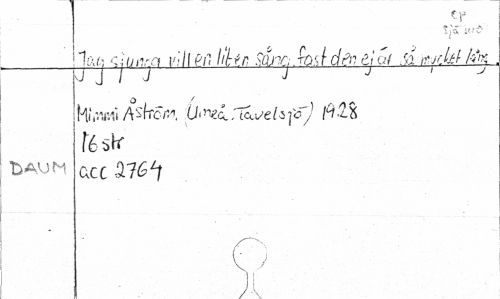 EP
Jag sjunga vill en liten sång, fast den ej är så mycket lång
Mimmi Åström. (Umeå. Tavelsjö) 1928
16 str
DAUM acc 2764